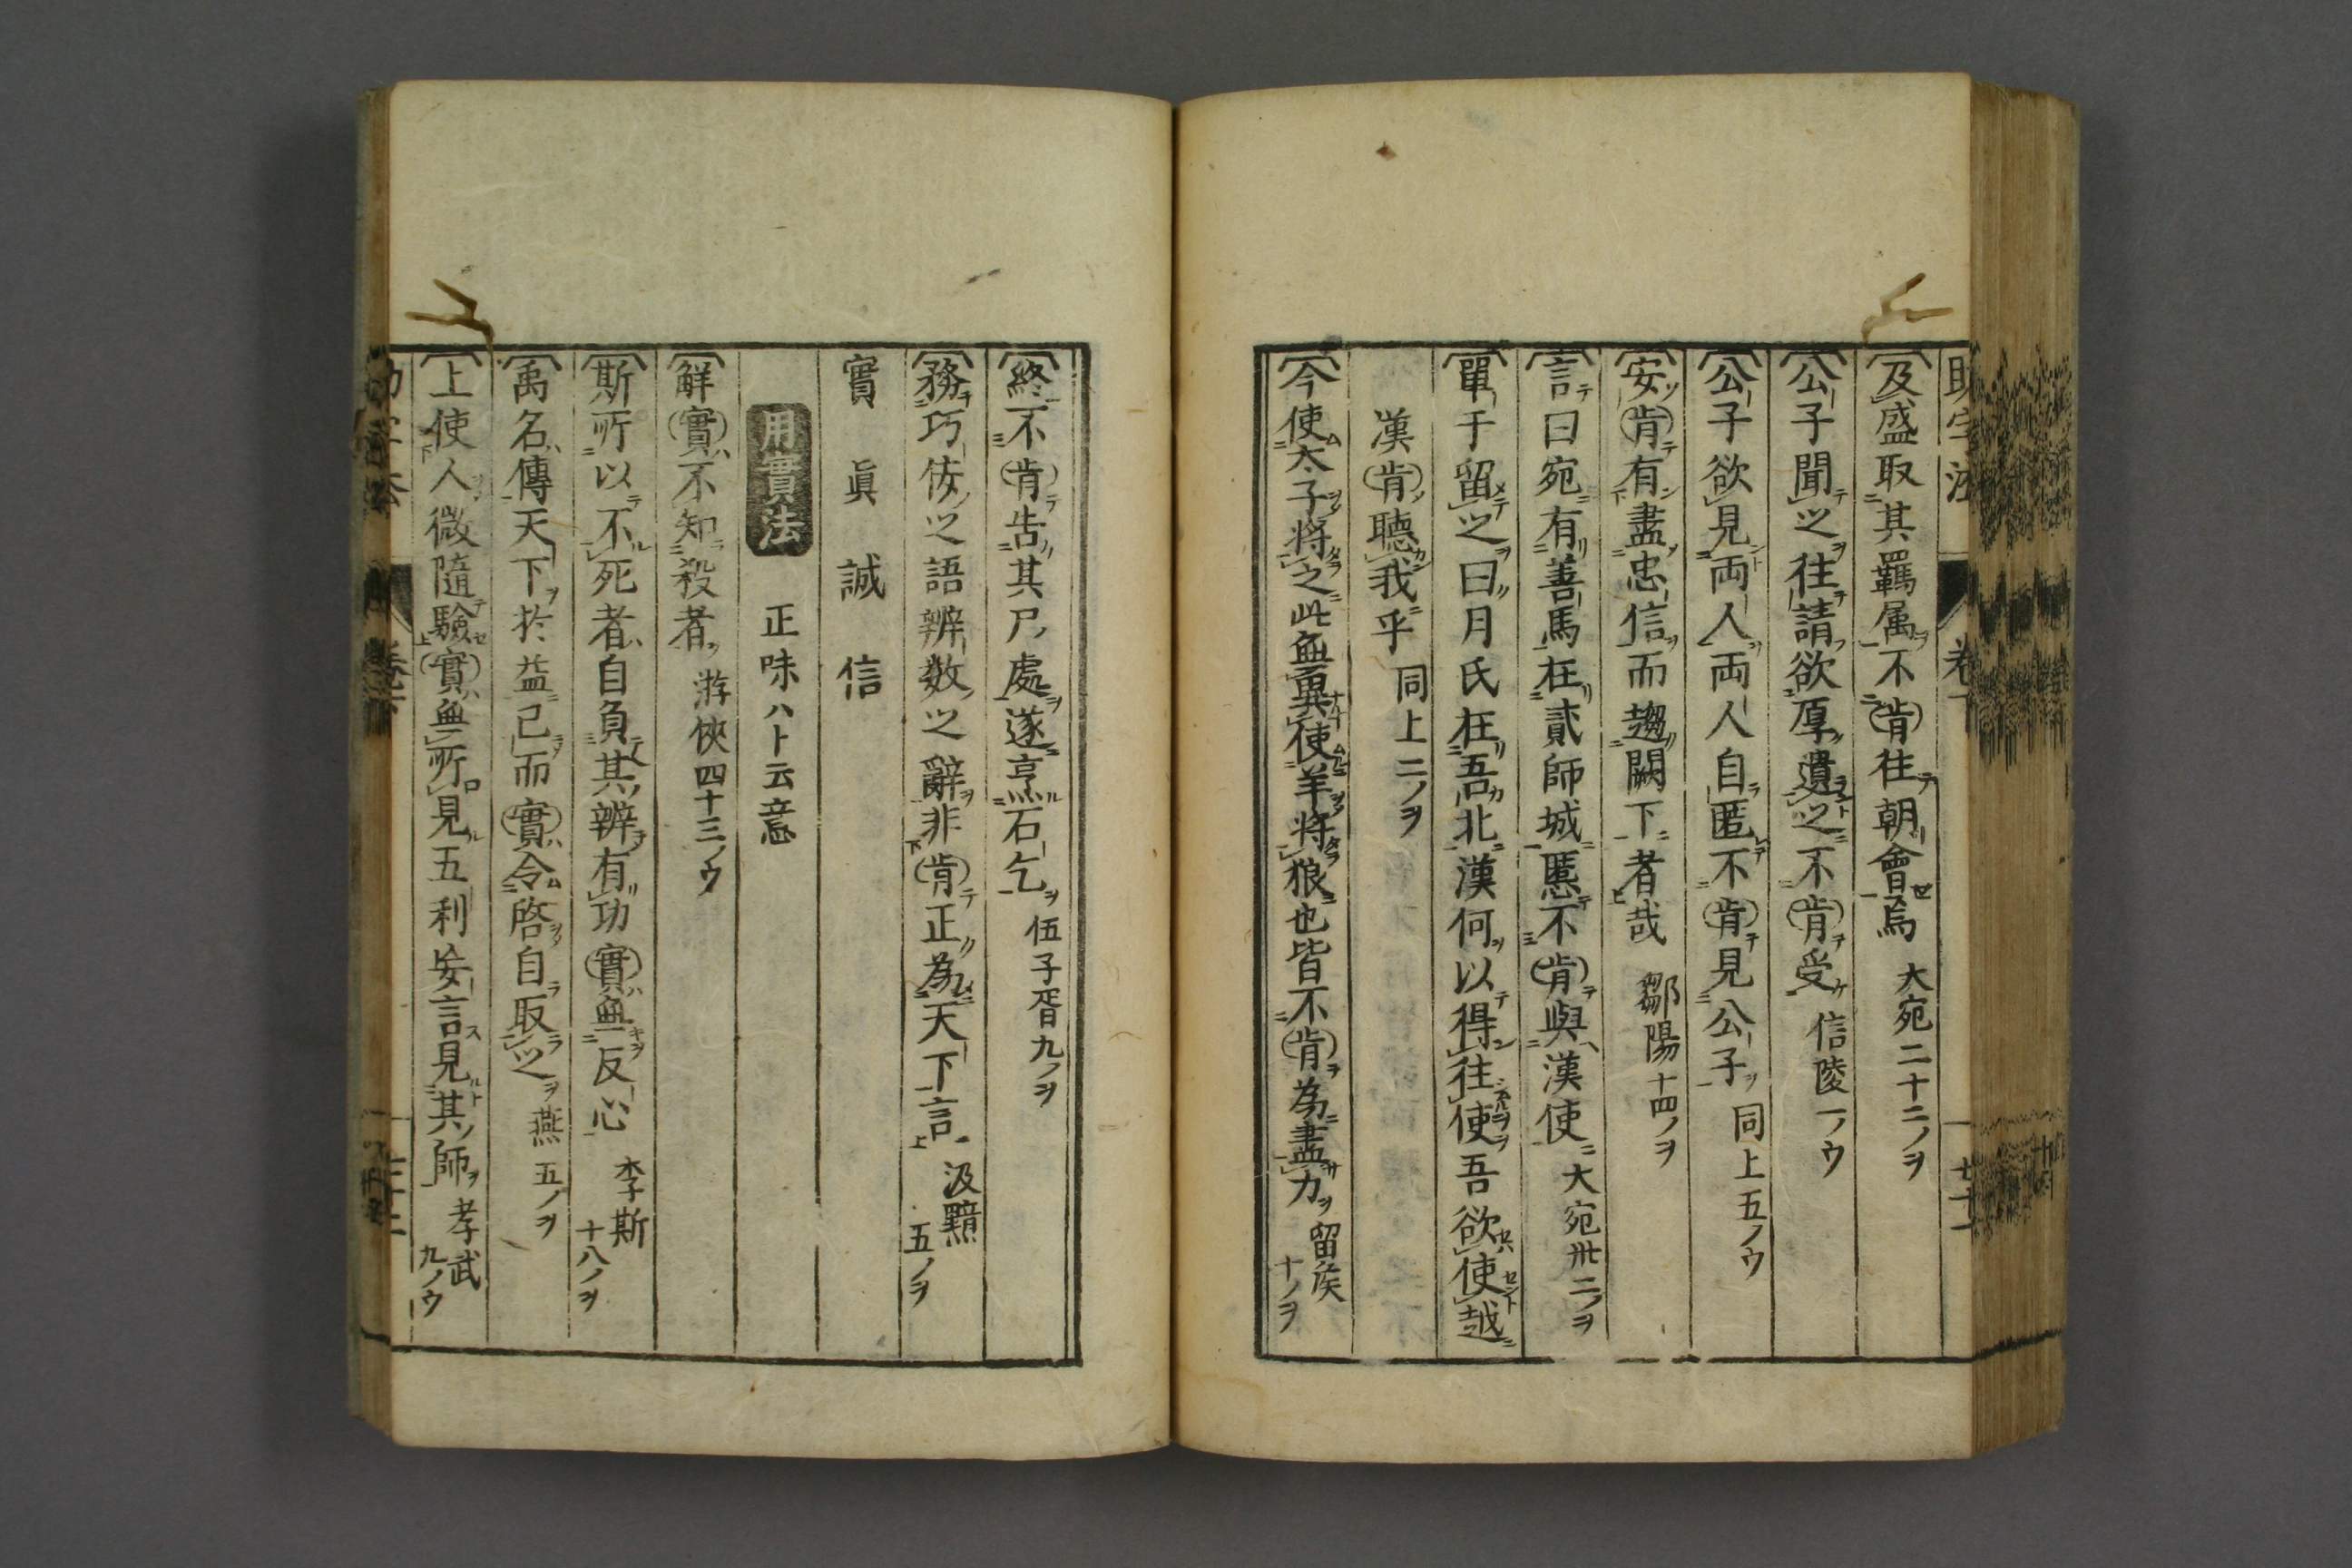 助字法 卷下 廿一
及盛取其羈属不肯往朝會焉 大宛二十二ノヲ
公子聞之往請欲厚遺之不肯受 信陵一ノウ
公子欲見両人両人自匿不肯見公子 同上五ノウ
安肯有盡忠信而趨闕下者哉 鄒陽十四ノヲ
言曰宛有善馬在貳師城匿不肯與漢使 大宛卅二ノヲ
單于留之曰月氏在吾北漢何以得往使吾欲使越
漢肯聽我乎 同上二ノヲ
今使太子將之此無異使羊将狼也皆不肯為盡力 留侯十ノヲ
終不肯告其尸處遂烹石乞 伍子胥九ノヲ
務巧佞之語辨数之辭非肯正為天下言 汲黯五ノヲ
實 眞 誠 信
用實法 正味ハト云意
解實不知殺者 游俠四十三ノウ
斯所以不死者自負其辨有功實無反心 李斯十八ノヲ
禹名傳天下於益已而實令啓自取之 燕五ノヲ
上使人微隨驗實無所見五利妄言見其師 孝武九ノウ